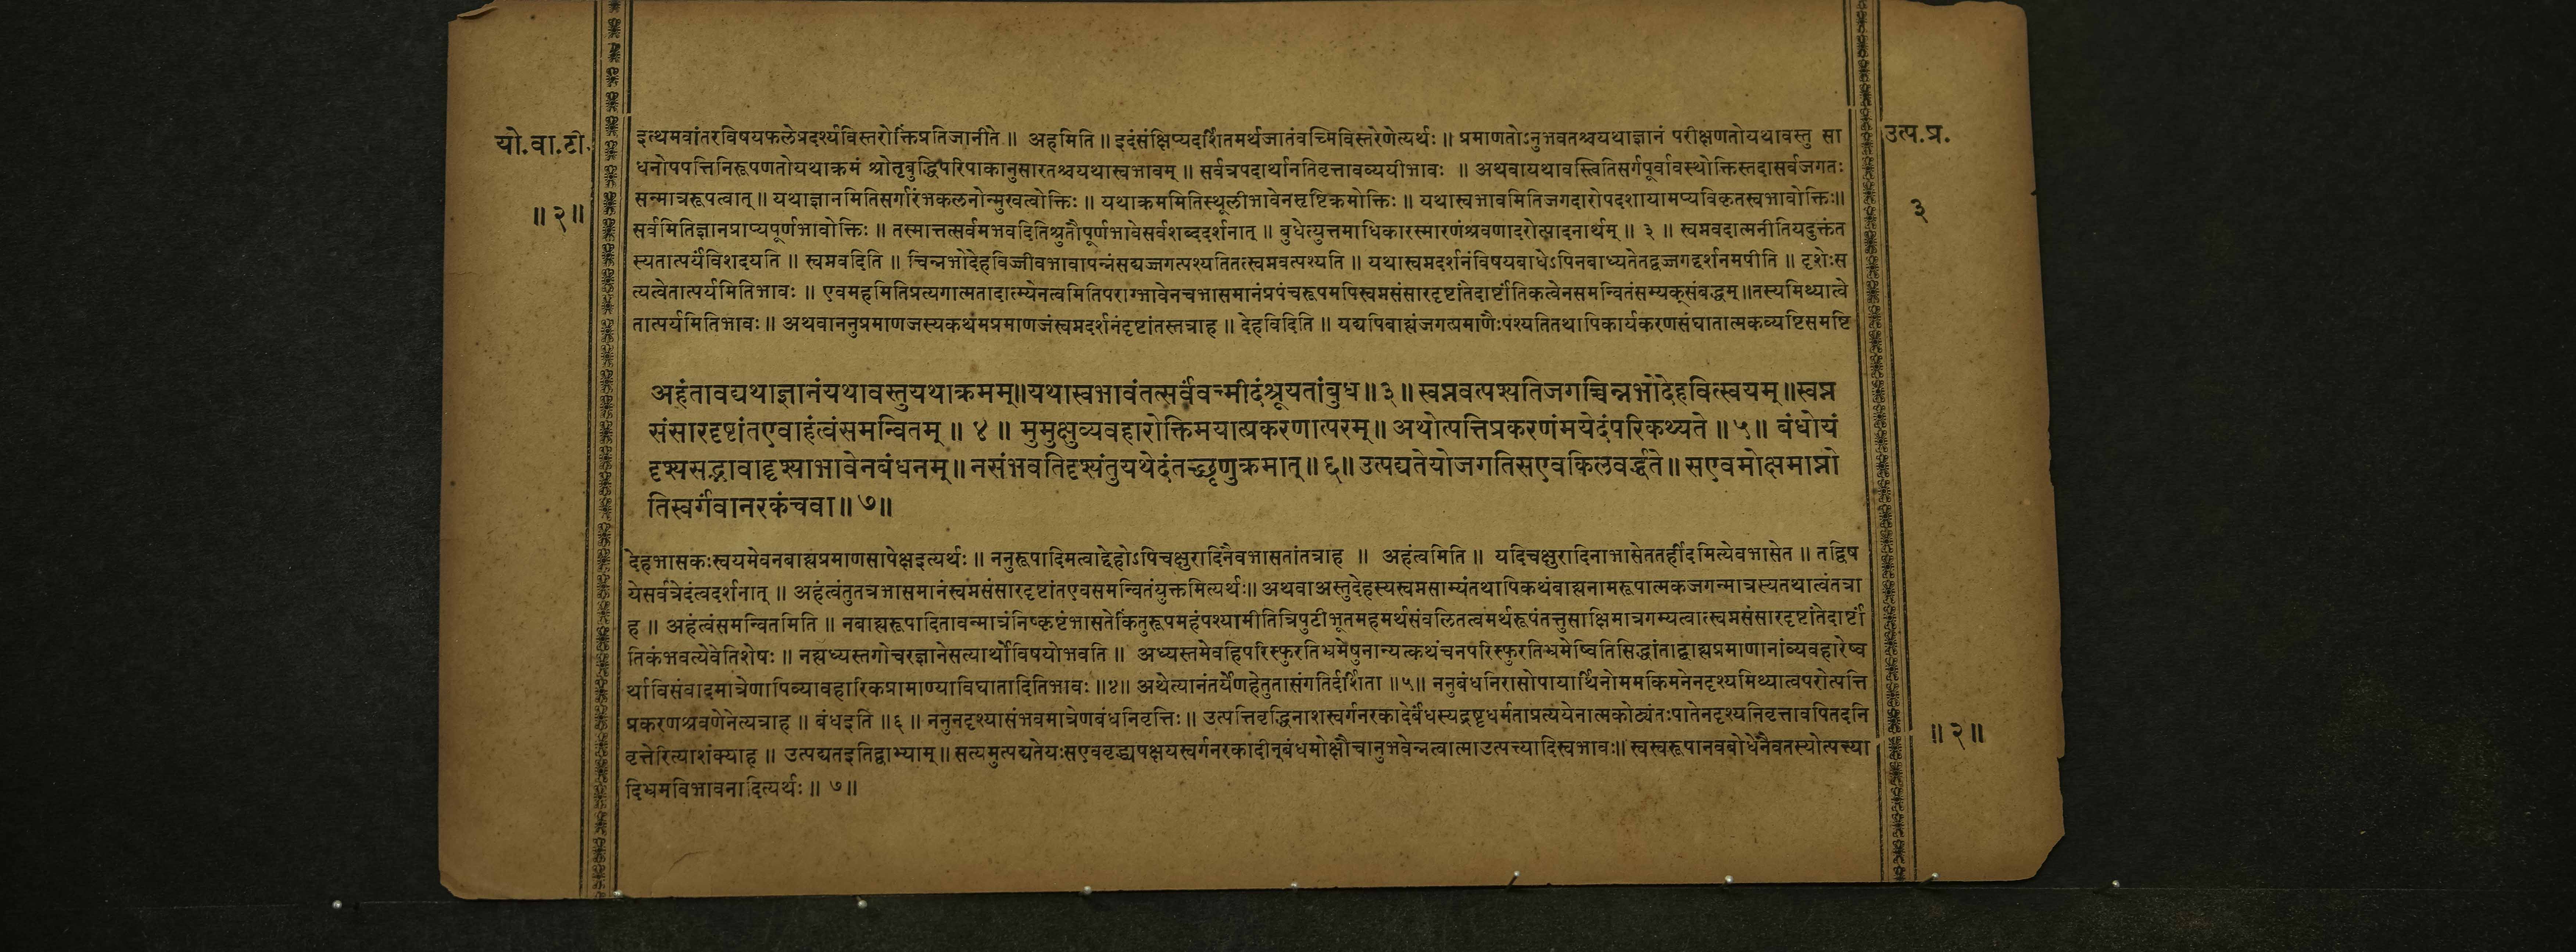 यो.वा.टी.
॥२॥
उत्प.प्र.
३
इत्थमवांतरविषयफलेप्रदर्श्यविस्तरोक्तिंप्रतिजानीते ॥ अहमिति ॥ इदंसंक्षिप्यदर्शितमर्थजातंवच्मिविस्तरेणेत्यर्थः ॥ प्रमाणतोऽनुभवतश्चयथाज्ञानं परीक्षणतोयथावस्तु सा
धनोपपत्तिनिरूपणतोयथाक्रमं श्रोतृबुद्धिपरिपाकानुसारतश्चयथास्वभावम् ॥ सर्वत्रपदार्थानतिवृत्तावव्ययीभावः ॥ अथवायथावस्त्वितिसर्गपूर्वावस्थोक्तिस्तदासर्वजगतः
सन्मात्ररूपत्वात् ॥ यथाज्ञानमितिसर्गारंभकलनोन्मुखत्वोक्तिः ॥ यथाक्रममितिस्थूलीभावेनसृष्टिक्रमोक्तिः ॥ यथास्वभावमितिजगदारोपदशायामप्यविकृतस्वभावोक्तिः॥
सर्वमितिज्ञानप्राप्यपूर्णभावोक्तिः ॥ तस्मात्तत्सर्वमभवदितिश्रुतौपूर्णभावेसर्वशब्ददर्शनात् ॥ बुधेत्युत्तमाधिकारस्मारणंश्रवणादरोत्पादनार्थम् ॥ ३ ॥ स्वप्नवदात्मनीतियदुक्तंत
स्यतात्पर्यंविशदयति ॥ स्वप्नवदिति ॥ चिन्नभोदेहविज्जीवभावापन्नंसद्यज्जगत्पश्यतितत्स्वप्नवत्पश्यति ॥ यथास्वप्नदर्शनंविषयबाधेऽपिनबाध्यतेतद्वज्जगद्दर्शनमपीति ॥ दृशेःस
त्यत्वेतात्पर्यमितिभावः ॥ एवमहमितिप्रत्यगात्मतादात्म्येनत्वमितिपराग्भावेनचभासमानंप्रपंचरूपमपिस्वप्नसंसारदृष्टांतेदार्ष्टांतिकत्वेनसमन्वितंसम्यक्संबद्धम्॥तस्यमिथ्यात्वे
तात्पर्यमितिभावः ॥ अथवाननुप्रमाणजस्यकथमप्रमाणजंस्वप्नदर्शनंदृष्टांतस्तत्राह ॥ देहविदिति ॥ यद्यपिबाह्यंजगत्प्रमाणैःपश्यतितथापिकार्यकरणसंघातात्मकव्यष्टिसमष्टि
अहंतावद्यथाज्ञानंयथावस्तुयथाक्रमम्॥यथास्वभावंतत्सर्वंवच्मीदंश्रूयतांबुध॥३॥ स्वप्नवत्पश्यतिजगच्चिन्नभोदेहवित्स्वयम्॥स्वप्न
संसारदृष्टांतएवाहंत्वंसमन्वितम् ॥ ४ ॥ मुमुक्षुव्यवहारोक्तिमयात्प्रकरणात्परम्॥ अथोत्पत्तिप्रकरणंमयेदंपरिकथ्यते ॥५॥ बंधोयं
दृश्यसद्भावाद्दृश्याभावेनबंधनम्॥ नसंभवतिदृश्यंतुयथेदंतच्छृणुक्रमात्॥६॥ उत्पद्यतेयोजगतिसएवकिलवर्द्धते॥ सएवमोक्षमाप्नो
तिस्वर्गंवानरकंचवा॥ ७॥
देहभासकःस्वयमेवनबाह्यप्रमाणसापेक्षइत्यर्थः ॥ ननुरूपादिमत्वाद्देहोऽपिचक्षुरादिनैवभासतांतत्राह ॥ अहंत्वमिति ॥ यदिचक्षुरादिनाभासेततर्हीदमित्येवभासेत ॥ तद्विष
येसर्वत्रेदंत्वदर्शनात् ॥ अहंत्वंतुतत्रभासमानंस्वप्नसंसारदृष्टांतएवसमन्वितंयुक्तमित्यर्थः॥ अथवाअस्तुदेहस्यस्वप्नसाम्यंतथापिकथंबाह्यनामरूपात्मकजगन्मात्रस्यतथात्वंतत्रा
ह ॥ अहंत्वंसमन्वितमिति ॥ नबाह्यरूपादितावन्मात्रंनिष्कृष्टंभासतेकिंतुरूपमहंपश्यामीतित्रिपुटीभूतमहमर्थसंवलितत्वमर्थरूपंतत्तुसाक्षिमात्रगम्यत्वात्स्वप्नसंसारदृष्टांतेदार्ष्टां
तिकंभवत्येवेतिशेषः ॥ नह्यध्यस्तगोचरज्ञानेसत्यार्थोविषयोभवति ॥ अध्यस्तमेवहिपरिस्फुरतिभ्रमेषुनान्यत्कथंचनपरिस्फुरतिभ्रमेष्वितिसिद्धांताद्बाह्यप्रमाणानांव्यवहारेष्व
र्थाविसंवादमात्रेणापिव्यावहारिकप्रामाण्याविघातादितिभावः ॥४॥ अथेत्यानंतर्येणहेतुतासंगतिर्दर्शिता ॥५॥ ननुबंधनिरासोपायार्थिनोममकिमनेनदृश्यमिथ्यात्वपरोत्पत्ति
प्रकरणश्रवणेनेत्यत्राह ॥ बंधइति ॥६ ॥ ननुनदृश्यासंभवमात्रेणबंधनिवृत्तिः॥ उत्पत्तिवृद्धिनाशस्वर्गनरकादेर्बंधस्यद्रष्टृधर्मताप्रत्ययेनात्मकोट्यंतःपातेनदृश्यनिवृत्तावपितदनि
वृत्तेरित्याशंक्याह ॥ उत्पद्यतइतिद्वाभ्याम्॥ सत्यमुत्पद्यतेयःसएववृद्ध्यपक्षयस्वर्गनरकादीन्बंधमोक्षौचानुभवेन्नत्वात्माउत्पत्त्यादिस्वभावः॥ स्वस्वरूपानवबोधेनैवतस्योत्पत्त्या
दिभ्रमविभावनादित्यर्थः ॥ ७॥
॥२॥